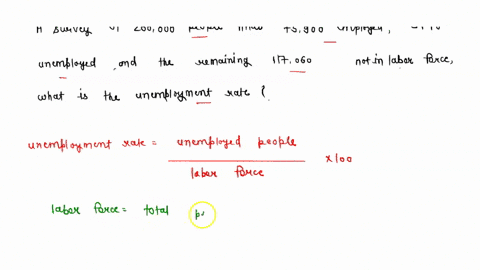 A survey of 200,000 people
unemployed and the remaining 117,060 not in labor force,
what is the unemployment rate
unemployment rate = unemployed people
labor force
x100
labor force = total